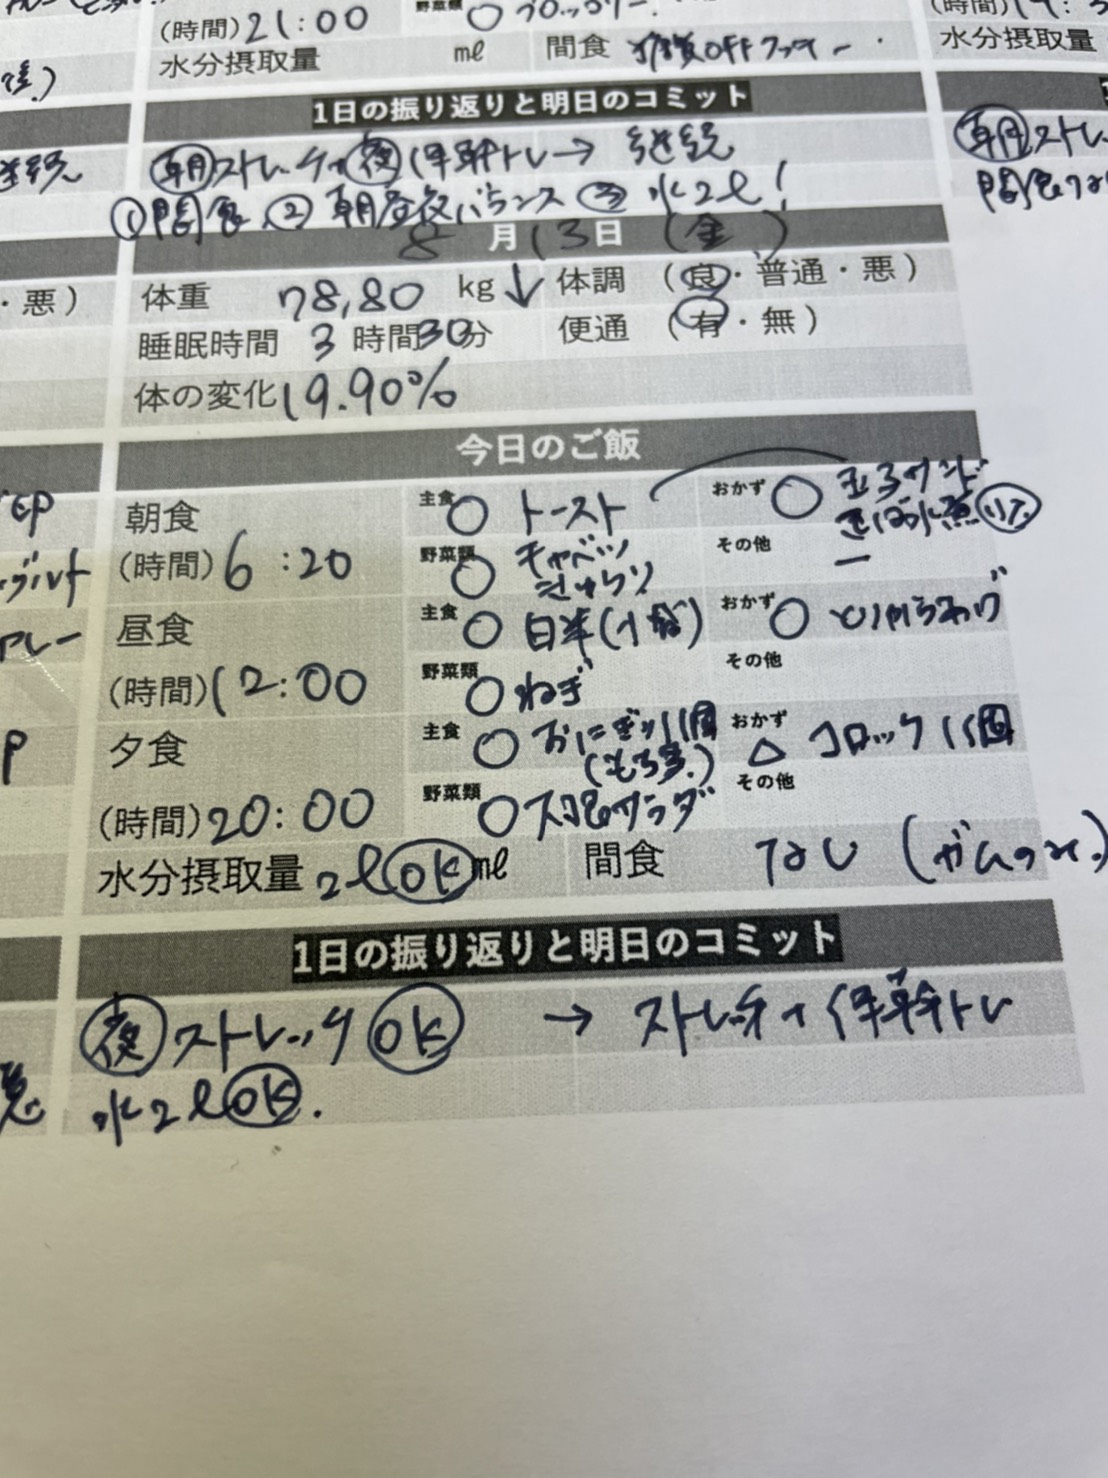 (時間) 21:00
野菜類 ○ ブロッコリー
水分摂取量 ml 間食 糖質OFF
(時間) 19:3
水分摂取量
1日の振り返りと明日のコミット
継続
朝 ストレッチ 夜 体幹トレ → 継続
①間食 ② 朝昼夜バランス ③ 水2l!
朝 ストレ
間食な
8月13日 (金)
・悪)
体重 78,80 kg ↓ 体調 (良・普通・悪)
睡眠時間 3時間30分 便通 (有・無)
体の変化 19.90%
今日のご飯
朝食 主食 ○ トースト おかず ○ 玉子サンド
さば水煮
(時間) 6:20 野菜類 ○ キャベツ その他 ー
きゅうり
昼食 主食 ○ 白米(小盛) おかず ○ とりからあげ
(時間) 12:00 野菜類 ○ ねぎ その他
夕食 主食 ○ おにぎり1個 おかず △ コロッケ1個
(もち麦)
(時間) 20:00 野菜類 ○ サラダ その他
水分摂取量 2l OK ml 間食 なし (ガムのみ)
1日の振り返りと明日のコミット
夜 ストレッチ OK → ストレッチ+体幹トレ
水2l OK.